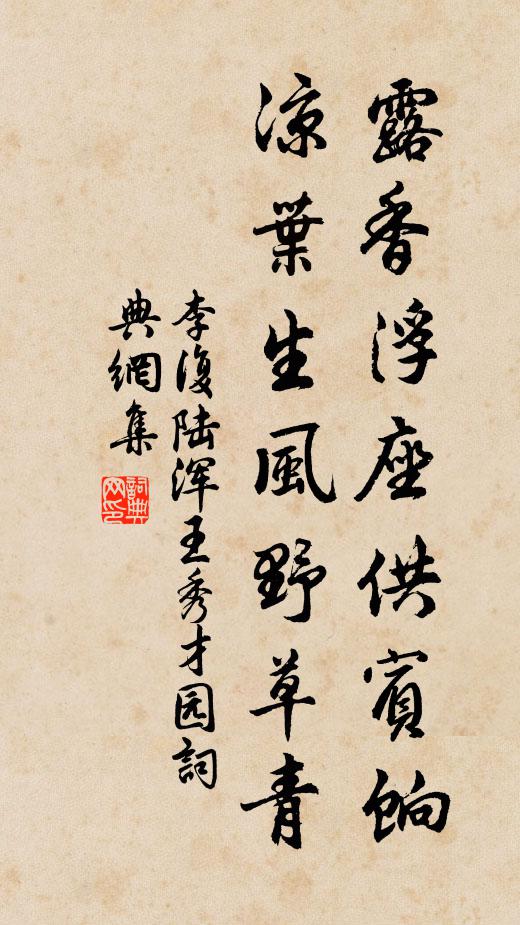 露香浮座供賓餉
凉葉生風野草青
李復陆浑王秀才园詞
典網集
詞典
网印